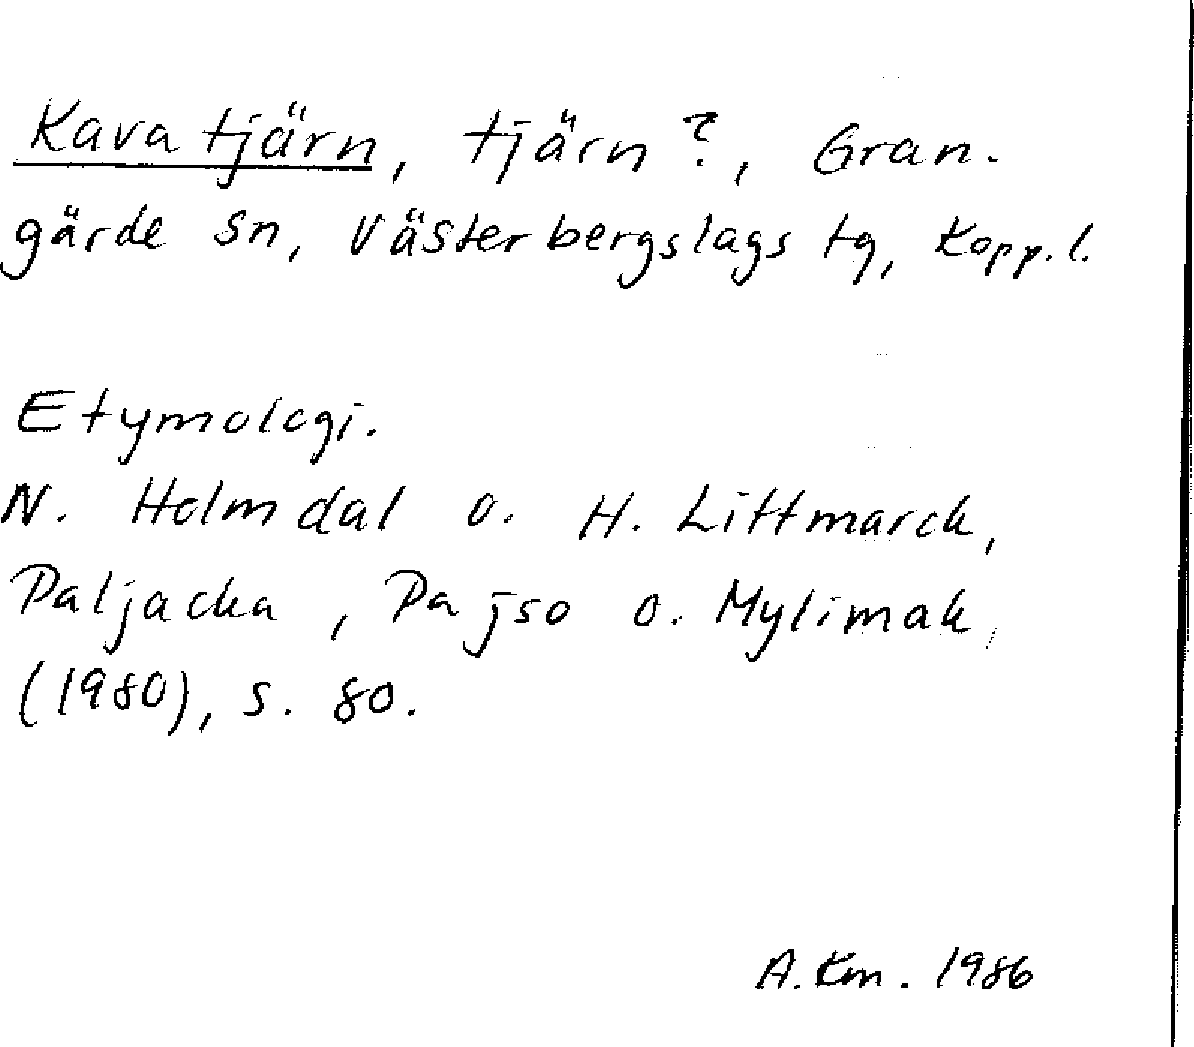 Kavatjärn, tjärn?, Gran-
gärde sn, Västerbergslags tg, Kopp. l.
Etymologi.
N. Holmdal o. H. Littmarck,
Paljacka, Pajso o. Mylimak,
(1980), s. 80.
A. Km. 1986